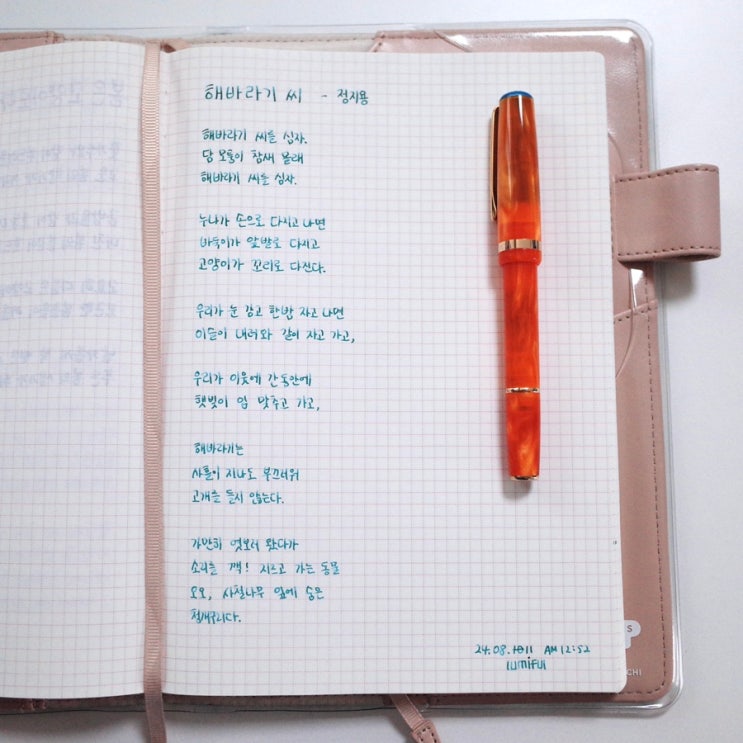 해바라기 씨 - 정지용
해바라기 씨를 심자.
담 모퉁이 참새 몰래
해바라기 씨를 심자.
누나가 손으로 다지고 나면
바둑이가 앞발로 다지고
고양이가 꼬리로 다진다.
우리가 눈 감고 한밤 자고 나면
이슬이 내려와 같이 자고 가고,
우리가 이웃에 간 동안에
햇빛이 입 맞추고 가고,
해바라기는
사흘이 지나도 부끄러워
고개를 들지 않는다.
가만히 엿보러 왔다가
소리를 꽥! 지르고 가는 동물
오오, 사철나무 잎에 숨은
청개구리다.
24.08.1011 AM 12:52
lumiful
S
CHI